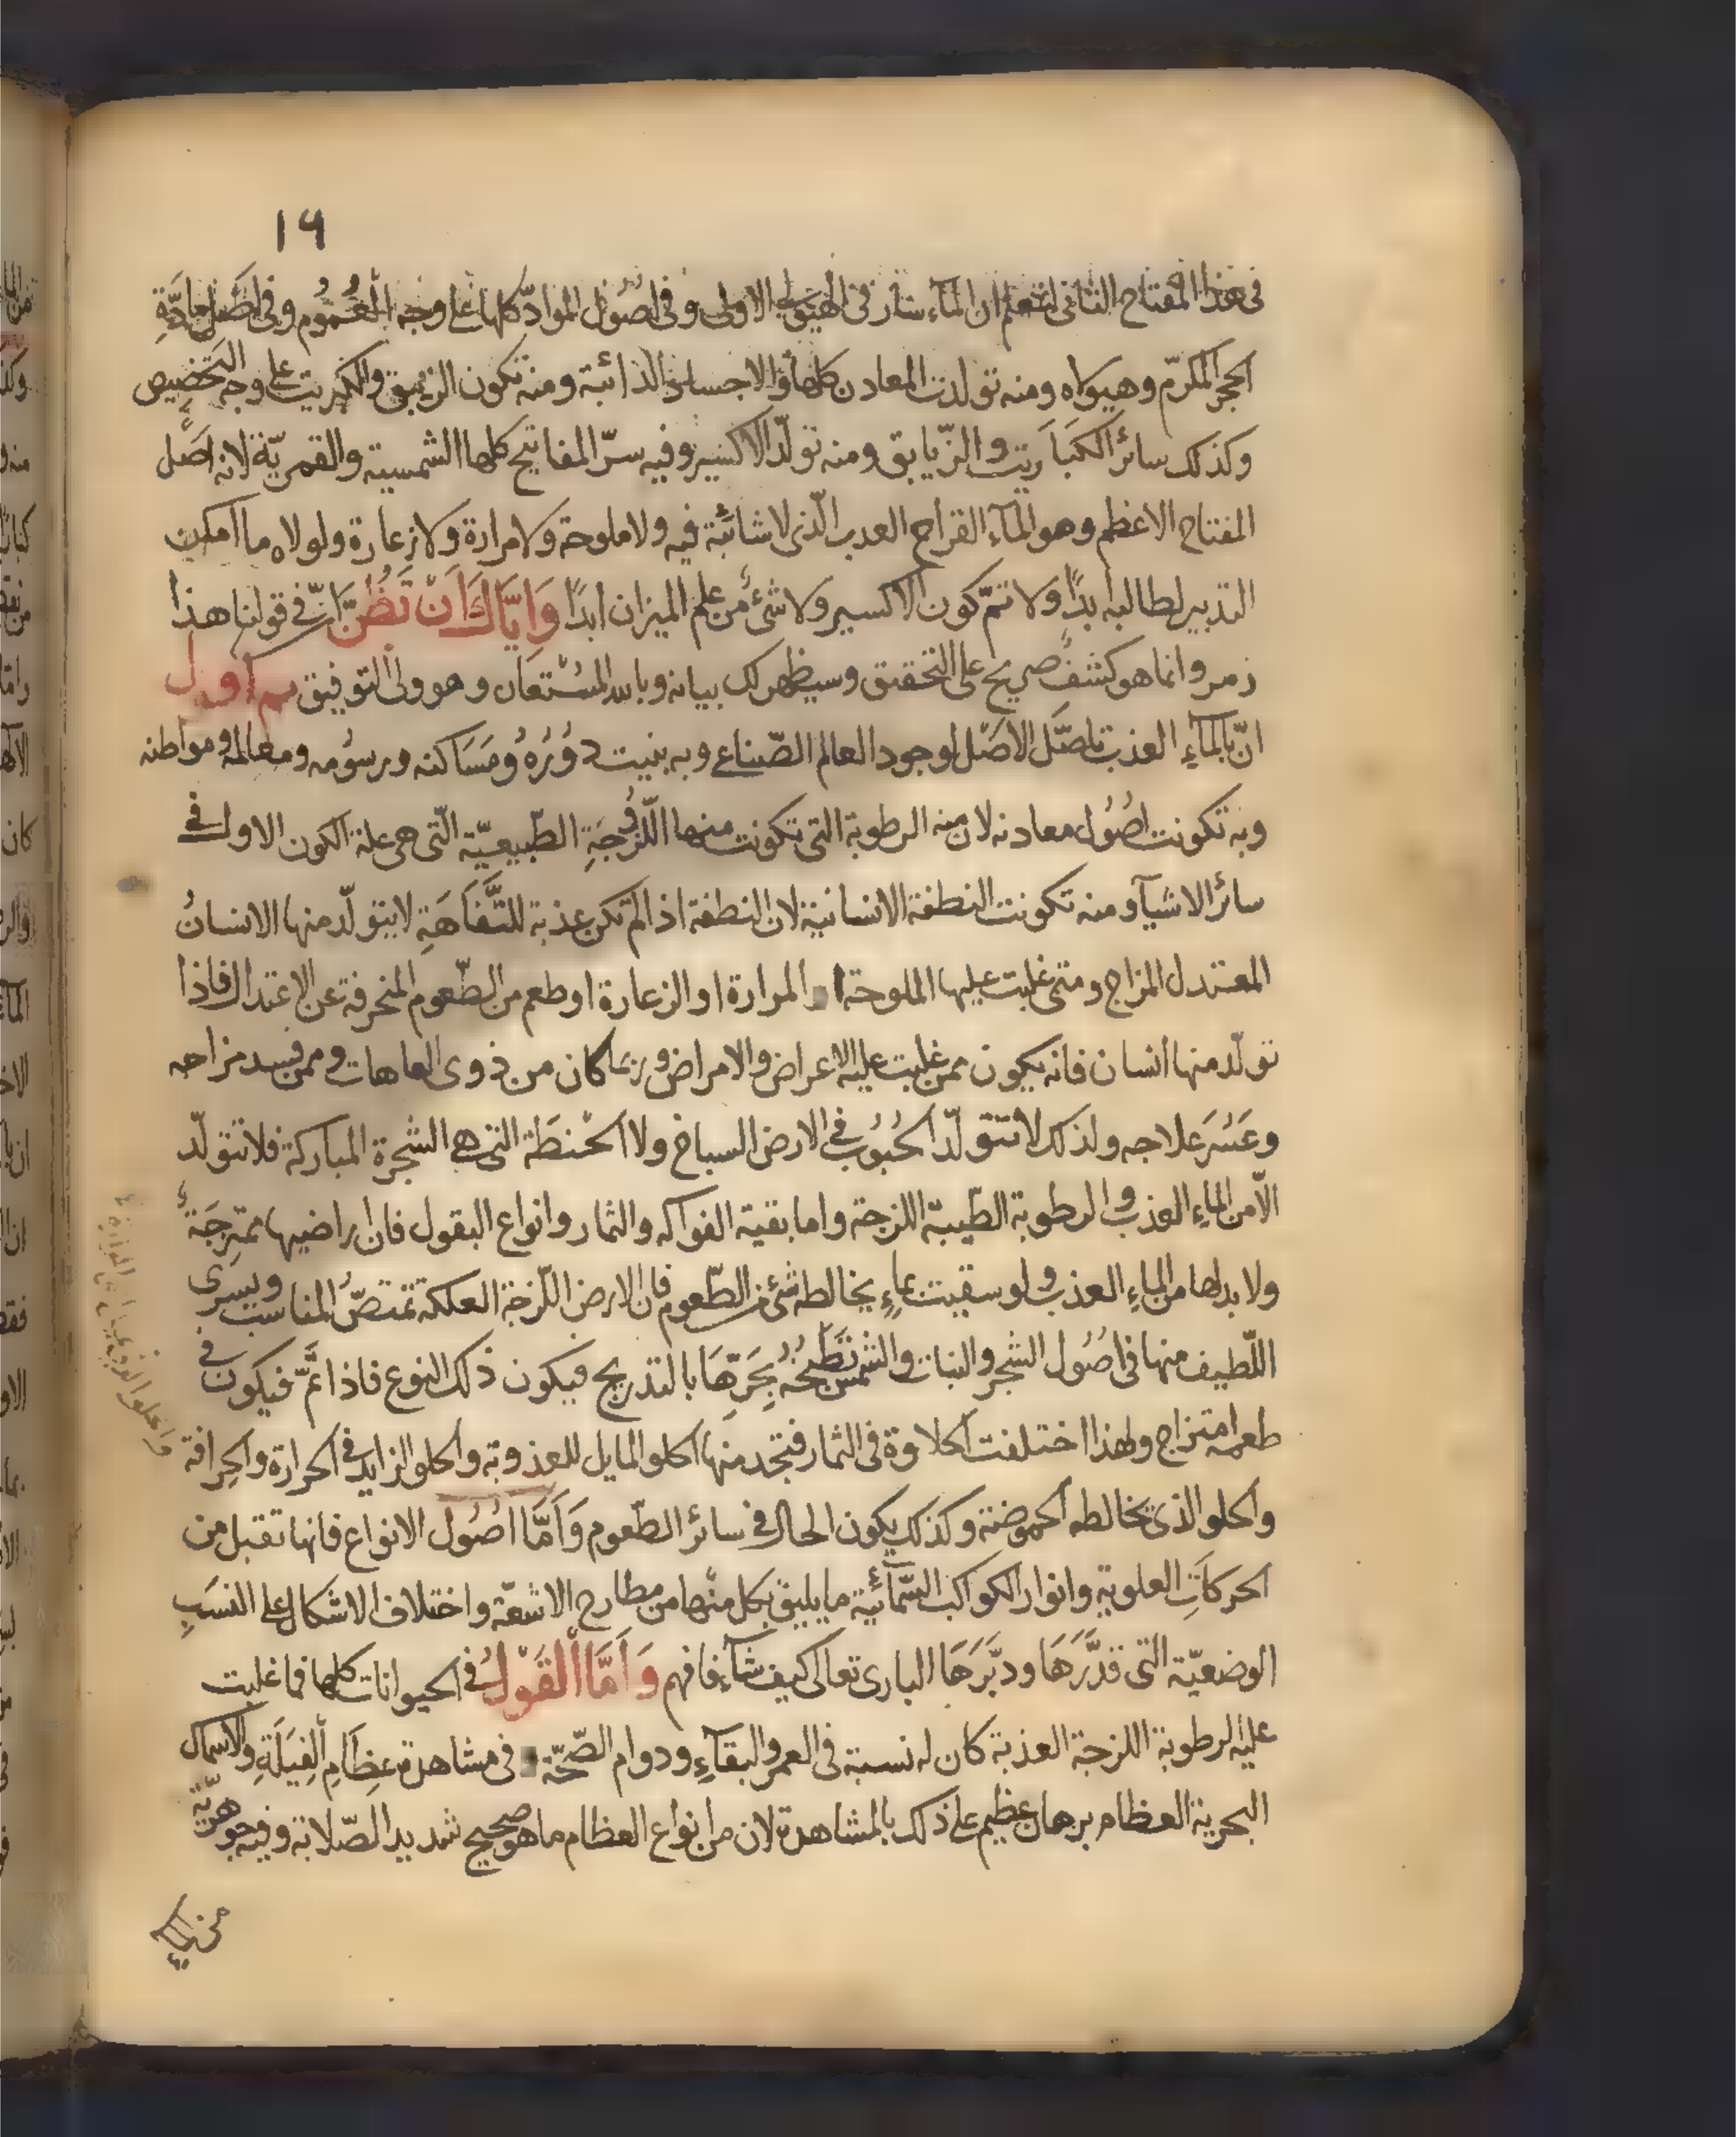 ١٩
في هذا المفتاح الثاني لتعلم ان المآء سار في الهيولى الاولى وفي اصول المواد كلها على وجه العموم وفي اصل مادة
الحجر المكرّم وهيولاه ومنه تولدت المعادن كلها والاجساد الذائبة ومنه تكون الزيبق والكبريت على وجه التخصيص
وكذلك سائر الكبَاريت والزّيابق ومنه تولّد الاكسير وفيه سرّ المفاتيح كلها الشمسية والقمريّة لانه اصل
المفتاح الاعظم وهو المآء القراح العدب الّذي لا شائبة فيه ولا ملوحة ولا مرارة ولا زعارة ولولاه ما امكن
التدبير لطالبه ابدًا ولا تمّ كون الاكسير ولا شئ من علم الميزان ابدًا وَاِيَّاكَ اَنْ تَظُنَّ انّ في قولنا هذا
زمر وانما هو كشف صريح على التحقيق وسيظهر لك بيانه وبالله المسْتعان وهو ولى التوفيق اقول
انّ بالمآءِ العذب تاصّل الاصْل لوجود العالم الصّناعي وبه بنيت دُوُرُهُ ومَسَاكنه ورسُومه ومعالمه ومواطنه
وبه تكونت اصُول معادنه لان منه الرطوبة التي تكونت منها اللّزُوجَةِ الطّبيعيّة الّتي هي علة الكون الاول في
سائر الاشيآ ومنه تكونت النطفة الانسانية لان النطفة اذا لم تكن عذبة للتَّفَاهَةِ لا يتولّد منها الانسانُ
المعتدل المزاج ومتى غلبت عليها الملوحة او المرارة او الزعارة او طعم من الطّعوم المنحرفة عن الاعتدال فاذا
تولّد منها انسان فانه يكون ممن غلبت عليه الاعراض والامراض وربما كان من ذوى العاهات وممن فسد مزاجه
وعَسُرَ علاجه ولذلك لا تتولّد الحُبُوب في الارض السباخ ولا الحنطَة التي هي الشجرة المباركة فلا تتولّد
الّا من الماءِ العذب والرطوبة الطّيبة اللزجة واما بقية الفواكه والثمار وانواع البقول فان اراضيها ممتزجَة
ولا بد لها من الماءِ العذب ولو سقيت بماءٍ يخالطه شئ من الطّعوم فان الارض اللّزجة العلكة تمتصّ المناسب ويسرى
اللّطيف منها في اصُول الشجر والنبات والشمس تطبخُهُ بِحَرِّهَا بالتدريج فيكون ذلك النوع فاذا تمَّ فيكون في
طعمه امتزاج ولهذا اختلفت الحلاوة في الثمار فتجد منها الحلو المايل للعذوبة والحلو الزايد في الحرارة والحِرافة
والحلو الذي يخالطه الحموضة وكذلك يكون الحال في سائر الطّعوم وَاَمَّا اصُوُل الانواع فانها تقبل من
الحركاتِ العلوية وانوار الكواكب السّمآئية ما يليق بكل منْها من مطارح الاشعّة واختلاف الاشكال على النسَبِ
الوضعيّة التي قدَّرَهَا ودبَّرَهَا البارى تعالى كيف شآء فافهم وَاَمَّا الْقَوْلُ في الحيوانات كلها فما غلبت
عليه الرطوبة اللزجة العذبة كان له نسبة في العمر والبقآءِ ودوام الصّحّة في مشاهدة عِظَامِ الفِيَلَةِ والاسماك
البحرية العظام برهان عظيم على ذلك بالمشاهدة لان من انواع العظام ما هو صحيح شديد الصّلابة وفيه جوهريّة